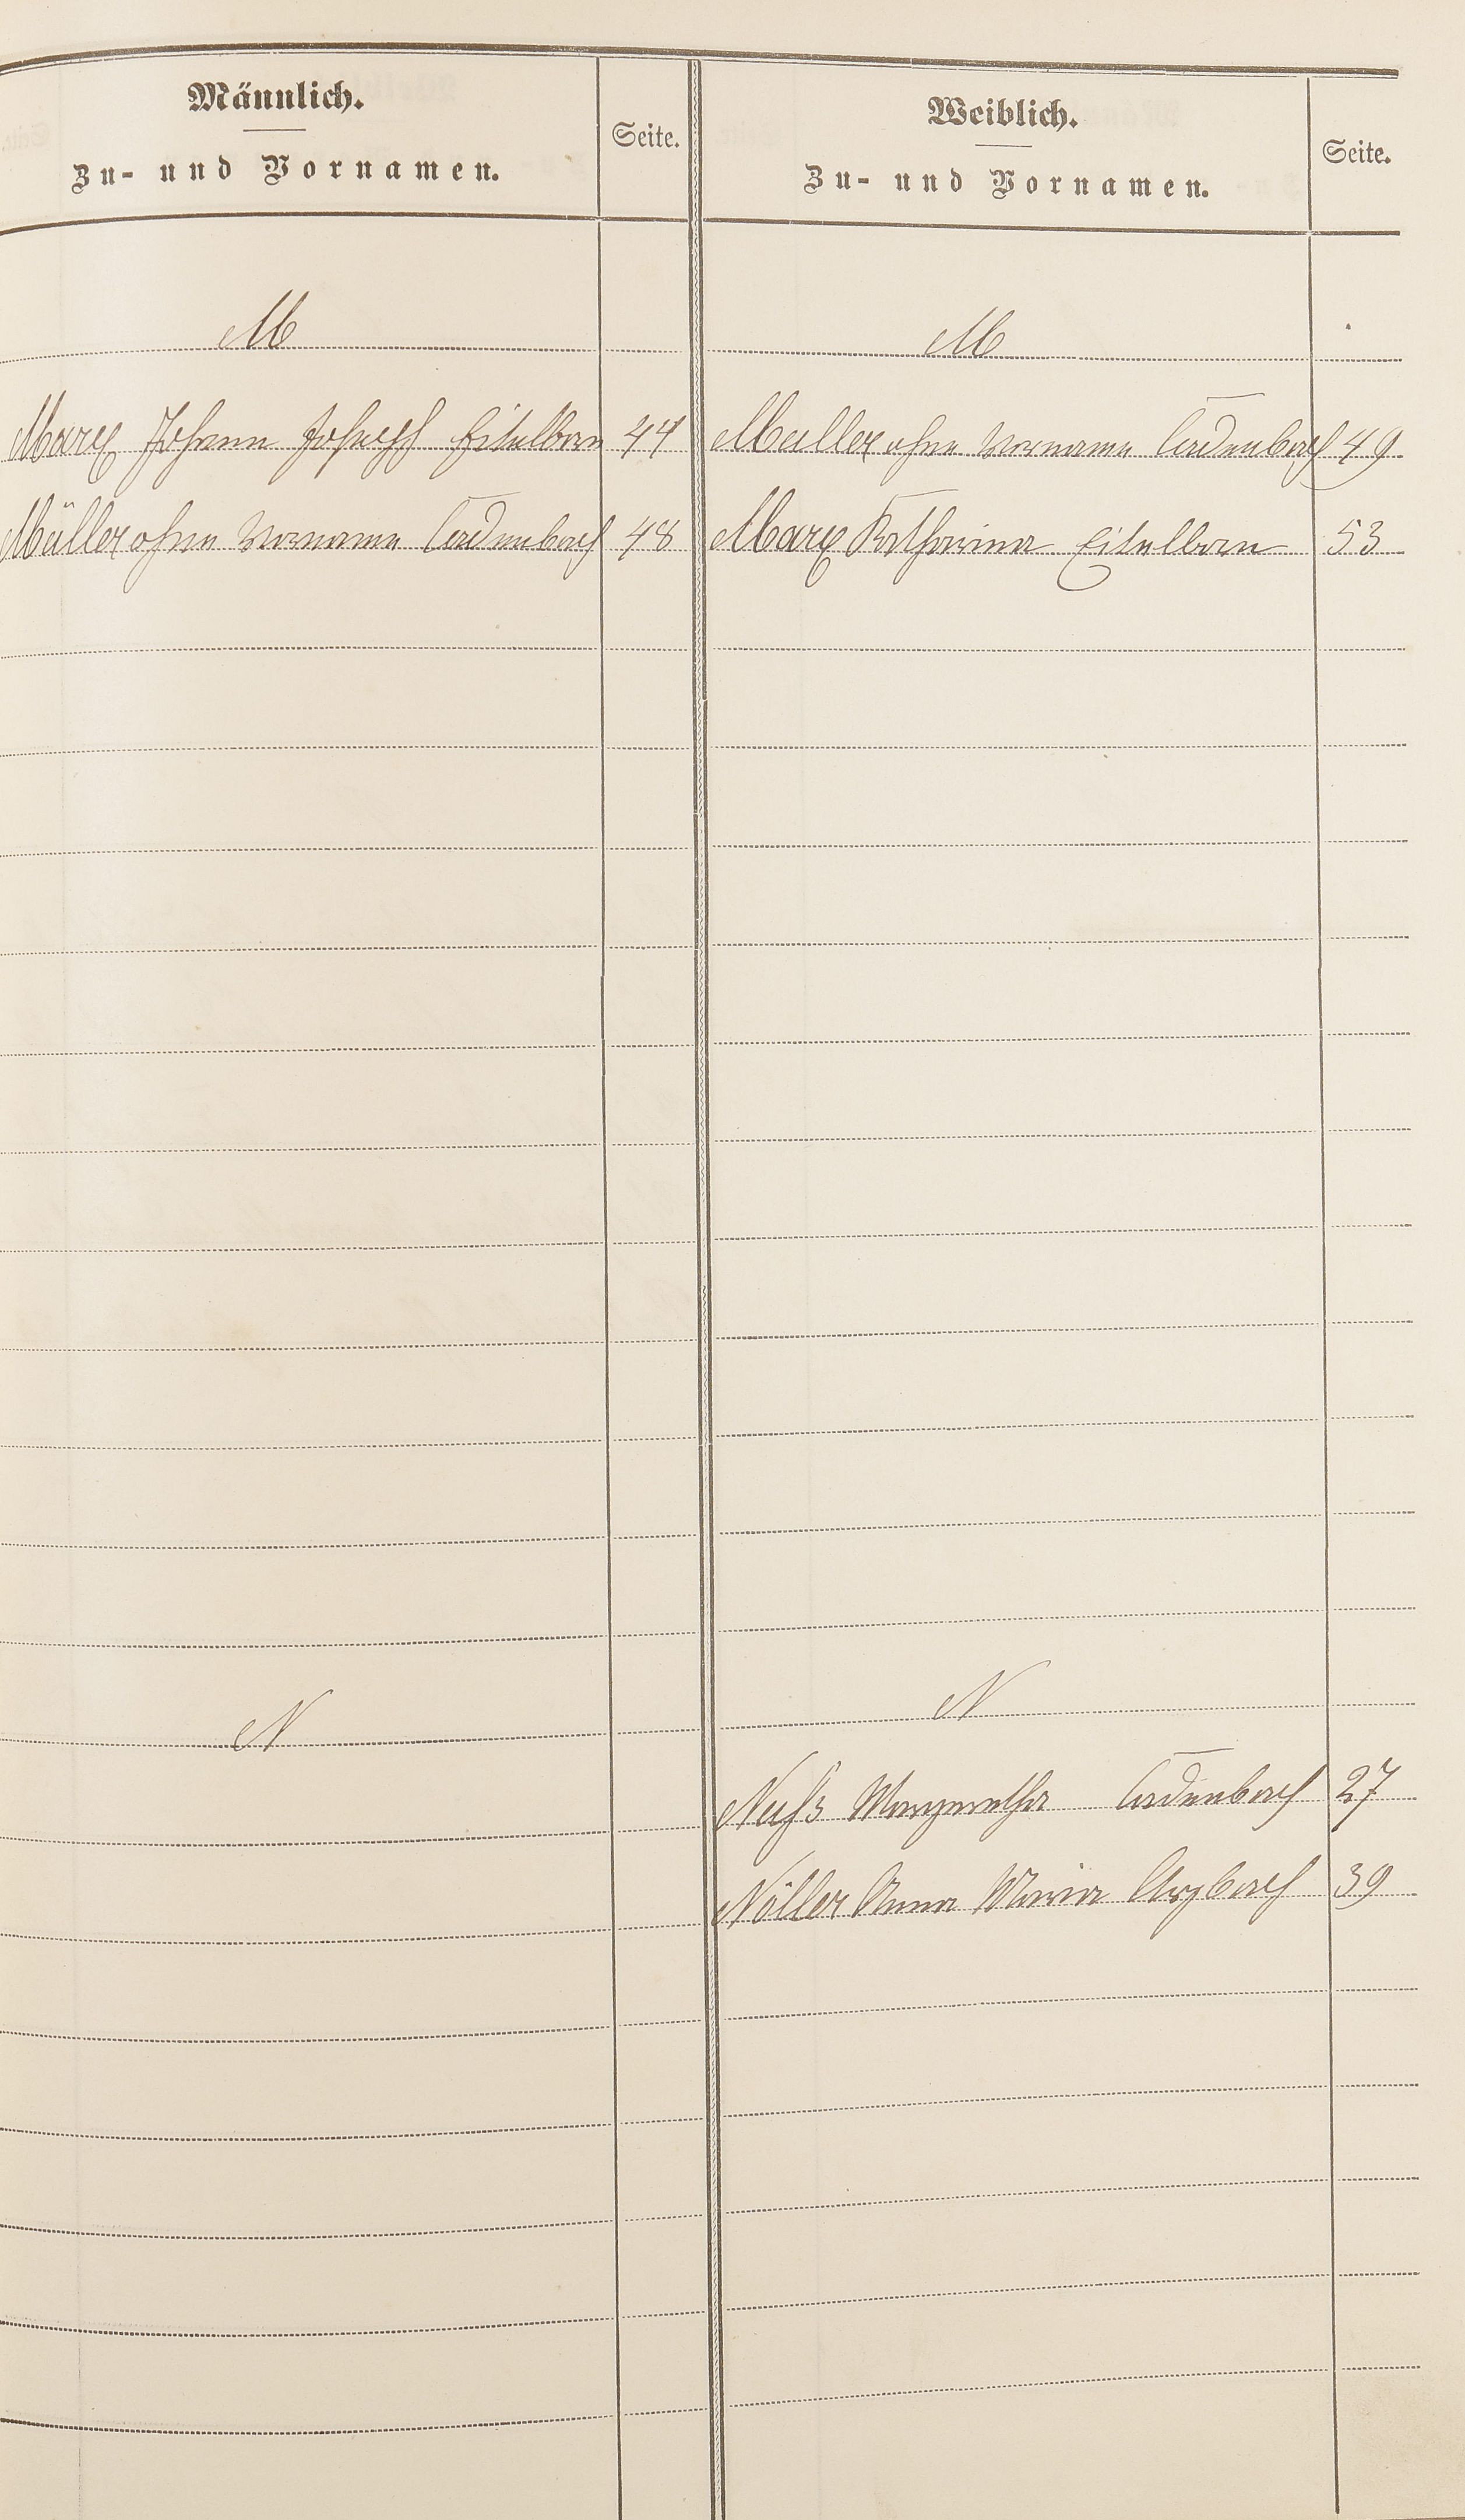 Männlich.
Zu- und Vornamen.
Seite.
Weiblich.
Zu- und Vornamen.
Seite.
M
M
Marx Johann Joseph Eitelborn 44
Muller ohne Vorname Cadenbach 49
Müller ohne Vorname Cadenbach 48
Marx Katharina Eitelborn 53
N
N
Nuß Margaretha Cadenbach 27
Nöller Anna Maria Arzbach 39